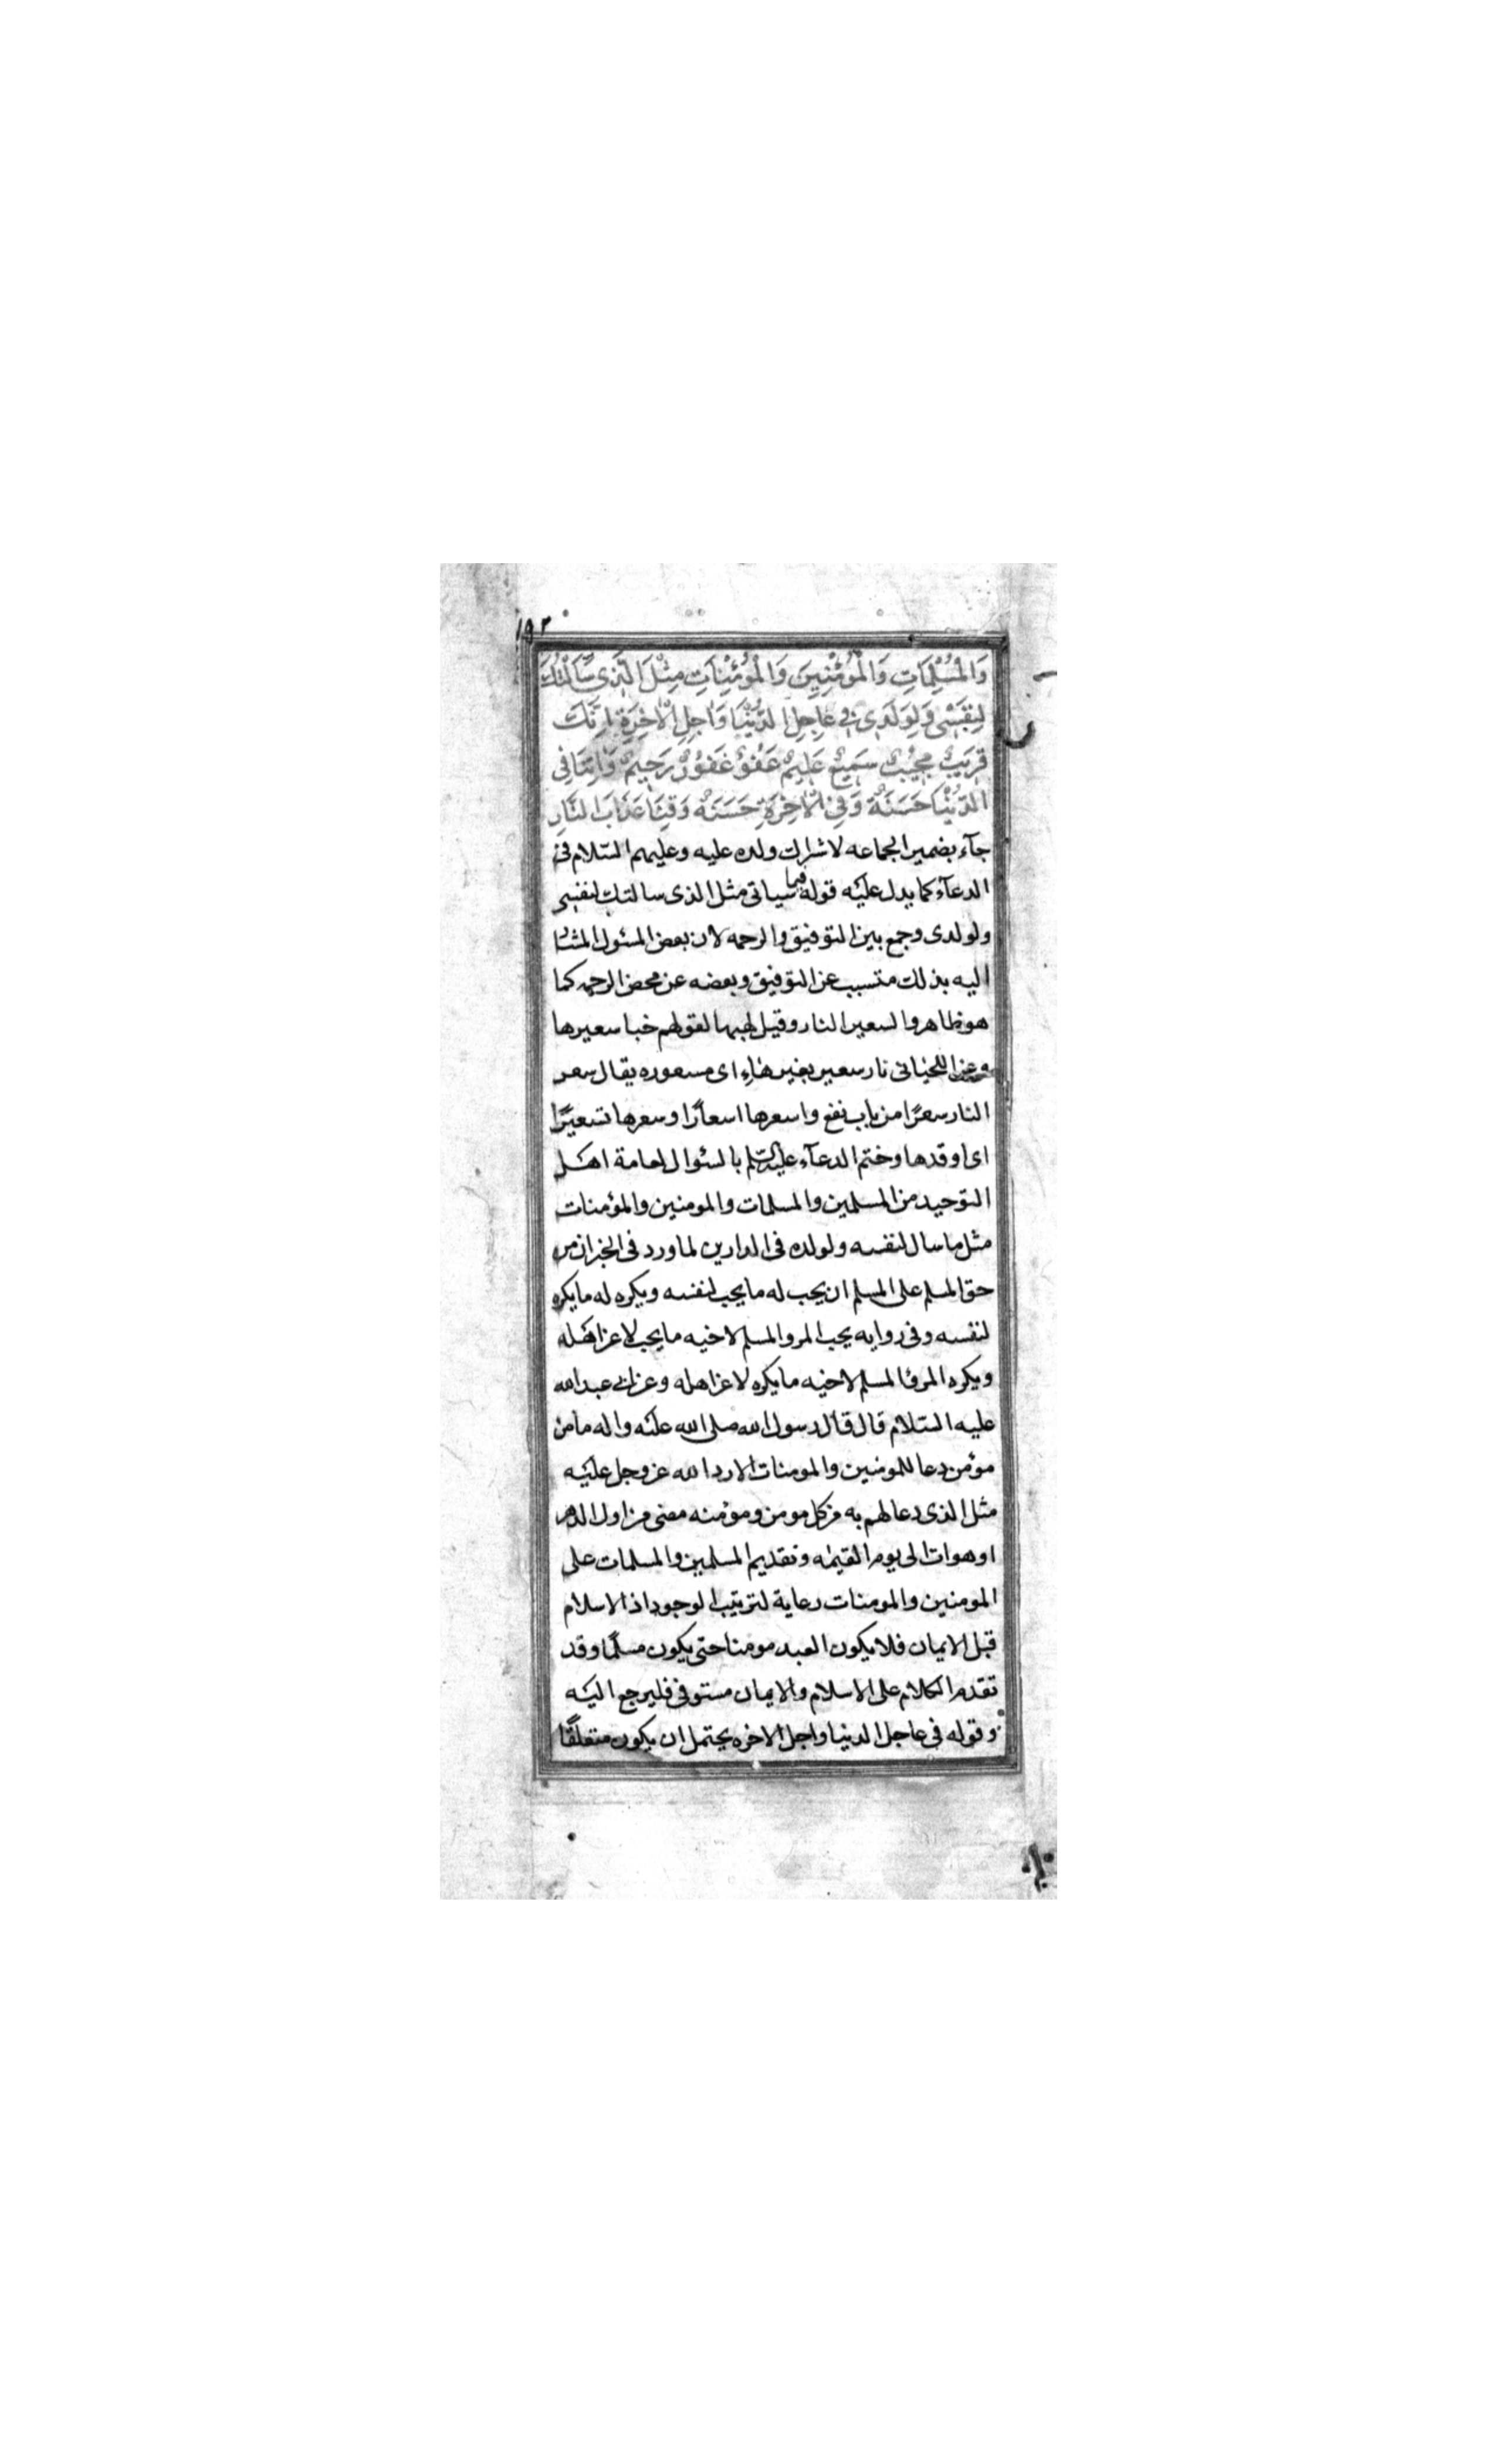 ١٩٢
وَالْمُسْلِمَاتِ وَالْمُؤْمِنِينَ وَالْمُؤْمِنَاتِ مِثْلَ الَّذِي سَأَلْتُكَ
لِنَفْسِي وَلِوَلَدِي فِي عَاجِلِ الدُّنْيَا وَاجِلِ الْاخِرَةِ اِنَّكَ
قَرِيبٌ مُجِيبٌ سَمِيعٌ عَلِيمٌ عَفُوٌّ غَفُورٌ رَحِيمٌ وَاتِنَا فِي
الدُّنْيَا حَسَنَةً وَفِي الْاخِرَةِ حَسَنَةً وَقِنَا عَذَابَ النَّارِ
جآء بضمير الجماعه لاشراك ولده عليه وعليهم السّلام فى
الدعآء كما يدل عليه قوله فيما سياتى مثل الذى سالتك لنفسى
ولولدى وجمع بين التوفيق والرحمه لان بعض المسئول المشار
اليه بذلك متسبب عن التوفيق وبعضه عن محض الرحمه كما
هو ظاهر والسعير النار وقيل لهبها لقولهم خبا سعيرها
وعن اللحيانى نار سعير بغير هاء اى مسعوره يقال سعر
النار سعرًا من باب نفع واسعرها اسعارًا وسعرها تسعيرًا
اى اوقدها وختم الدعآء عليه السّلم بالسئوال لعامة اهل
التوحيد من المسلمين والمسلمات والمومنين والمؤمنات
مثل ما سال لنفسه ولولده فى الدارين لما ورد فى الخبر ان من
حق المسلم على المسلم ان يحب له ما يحب لنفسه ويكره له ما يكره
لنفسه وفى روايه يحب المرو المسلم لاخيه ما يحب لاعز اهله
ويكره المرؤ المسلم لاخيه ما يكره لاعز اهله وعن ابى عبد الله
عليه السّلام قال قال رسول الله صلى الله عليه واله ما من
مؤمن دعا للمومنين والمومنات الا رد الله عز وجل عليه
مثل الذى دعا لهم به من كل مومن ومؤمنه مضى من اول الدهر
او هو ات الى يوم القيمه وتقديم المسلمين والمسلمات على
المومنين والمومنات رعاية لترتيب الوجود اذ الاسلام
قبل الايمان فلا يكون العبد مومنا حتى يكون مسلمًا وقد
تقدم الكلام على الاسلام والايمان مستوفى فليرجع اليه
وقوله فى عاجل الدنيا واجل الاخره يحتمل ان يكون متعلقًا